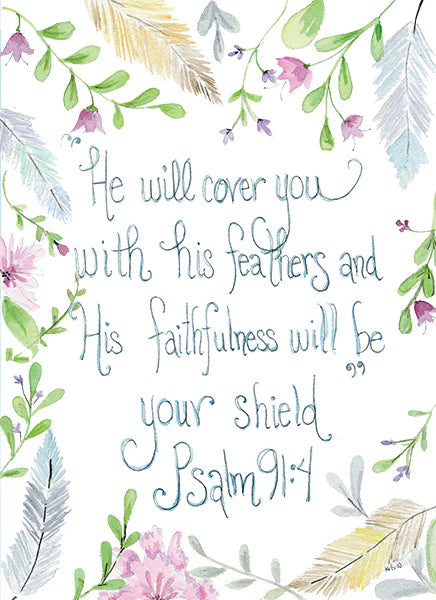 "He will cover you
with his feathers and
His faithfulness will be"
your shield
Psalm 91:4